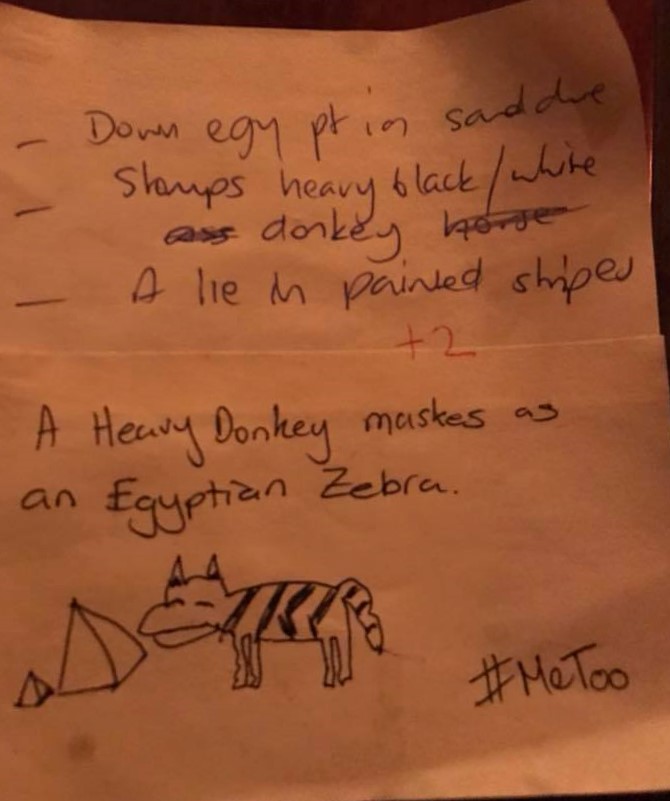 – Down egypt in sand dune
– Stomps heavy black/white
ass donkey horse
– A lie in painted stripes
+2
A Heavy Donkey maskes as
an Egyptian Zebra.
#MeToo